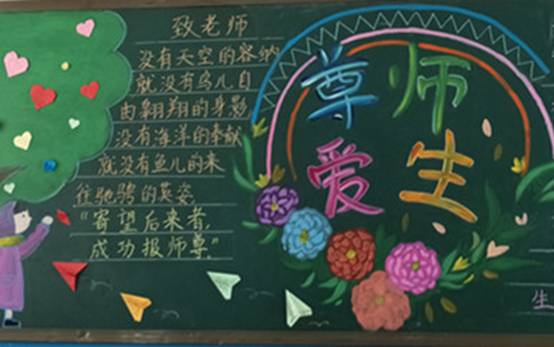 致老师
没有天空的容纳
就没有鸟儿自
由翱翔的身影
没有海洋的奉献
就没有鱼儿的来
往驰骋的英姿
“寄望后来者,
成功报师尊”
尊师
爱生
生